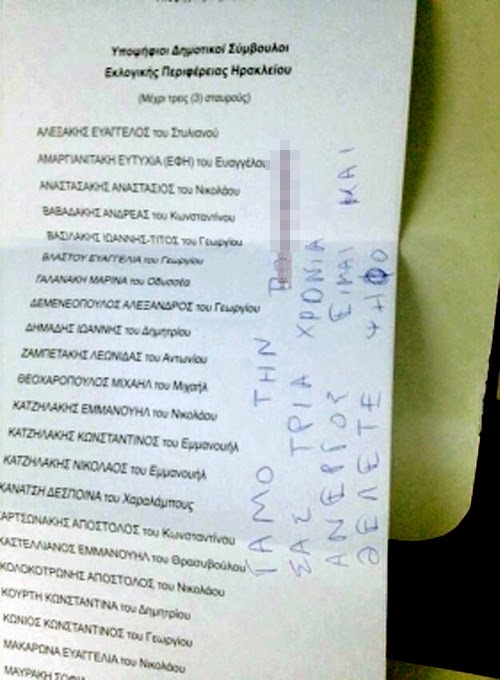 Υποψήφιοι Δημοτικοί Σύμβουλοι
Εκλογικής Περιφέρειας Ηρακλείου
(Μέχρι τρεις (3) σταυρούς)
ΑΛΕΞΑΚΗΣ ΕΥΑΓΓΕΛΟΣ του Στυλιανού
ΑΜΑΡΓΙΑΝΙΤΑΚΗ ΕΥΤΥΧΙΑ (ΕΦΗ) του Ευαγγέλου
ΑΝΑΣΤΑΣΑΚΗΣ ΑΝΑΣΤΑΣΙΟΣ του Νικολάου
ΒΑΒΑΔΑΚΗΣ ΑΝΔΡΕΑΣ του Κωνσταντίνου
ΒΑΣΙΛΑΚΗΣ ΙΩΑΝΝΗΣ-ΤΙΤΟΣ του Γεωργίου
ΒΛΑΣΤΟΥ ΕΥΑΓΓΕΛΙΑ του Γεωργίου
ΓΑΛΑΝΑΚΗ ΜΑΡΙΝΑ του Οδυσσέα
ΔΕΜΕΝΕΟΠΟΥΛΟΣ ΑΛΕΞΑΝΔΡΟΣ του Γεωργίου
ΔΗΜΑΔΗΣ ΙΩΑΝΝΗΣ του Δημητρίου
ΖΑΜΠΕΤΑΚΗΣ ΛΕΩΝΙΔΑΣ του Αντωνίου
ΘΕΟΧΑΡΟΠΟΥΛΟΣ ΜΙΧΑΗΛ του Μιχαήλ
ΚΑΤΖΗΛΑΚΗΣ ΕΜΜΑΝΟΥΗΛ του Νικολάου
ΚΑΤΖΗΛΑΚΗΣ ΚΩΝΣΤΑΝΤΙΝΟΣ του Εμμανουήλ
ΚΑΤΖΗΛΑΚΗΣ ΝΙΚΟΛΑΟΣ του Εμμανουήλ
ΚΑΝΑΤΣΗ ΔΕΣΠΟΙΝΑ του Χαραλάμπους
ΚΑΡΤΣΩΝΑΚΗΣ ΑΠΟΣΤΟΛΟΣ του Κωνσταντίνου
ΚΑΣΤΕΛΛΙΑΝΟΣ ΕΜΜΑΝΟΥΗΛ του Θρασυβούλου
ΚΟΛΟΚΟΤΡΩΝΗΣ ΑΠΟΣΤΟΛΟΣ του Νικολάου
ΚΟΥΡΤΗ ΚΩΝΣΤΑΝΤΙΝΑ του Δημητρίου
ΚΩΝΙΟΣ ΚΩΝΣΤΑΝΤΙΝΟΣ του Γεωργίου
ΜΑΚΑΡΩΝΑ ΕΥΑΓΓΕΛΙΑ του Νικολάου
ΜΑΥΡΑΚΗ ΣΟΦΙΑ
ΓΑΜΟ ΤΗΝ
ΣΑΣ ΤΡΙΑ ΧΡΟΝΙΑ
ΑΝΕΡΓΟΣ ΕΙΜΑΙ ΚΑΙ
ΘΕΛΕΤΕ ΨΗΦΟ